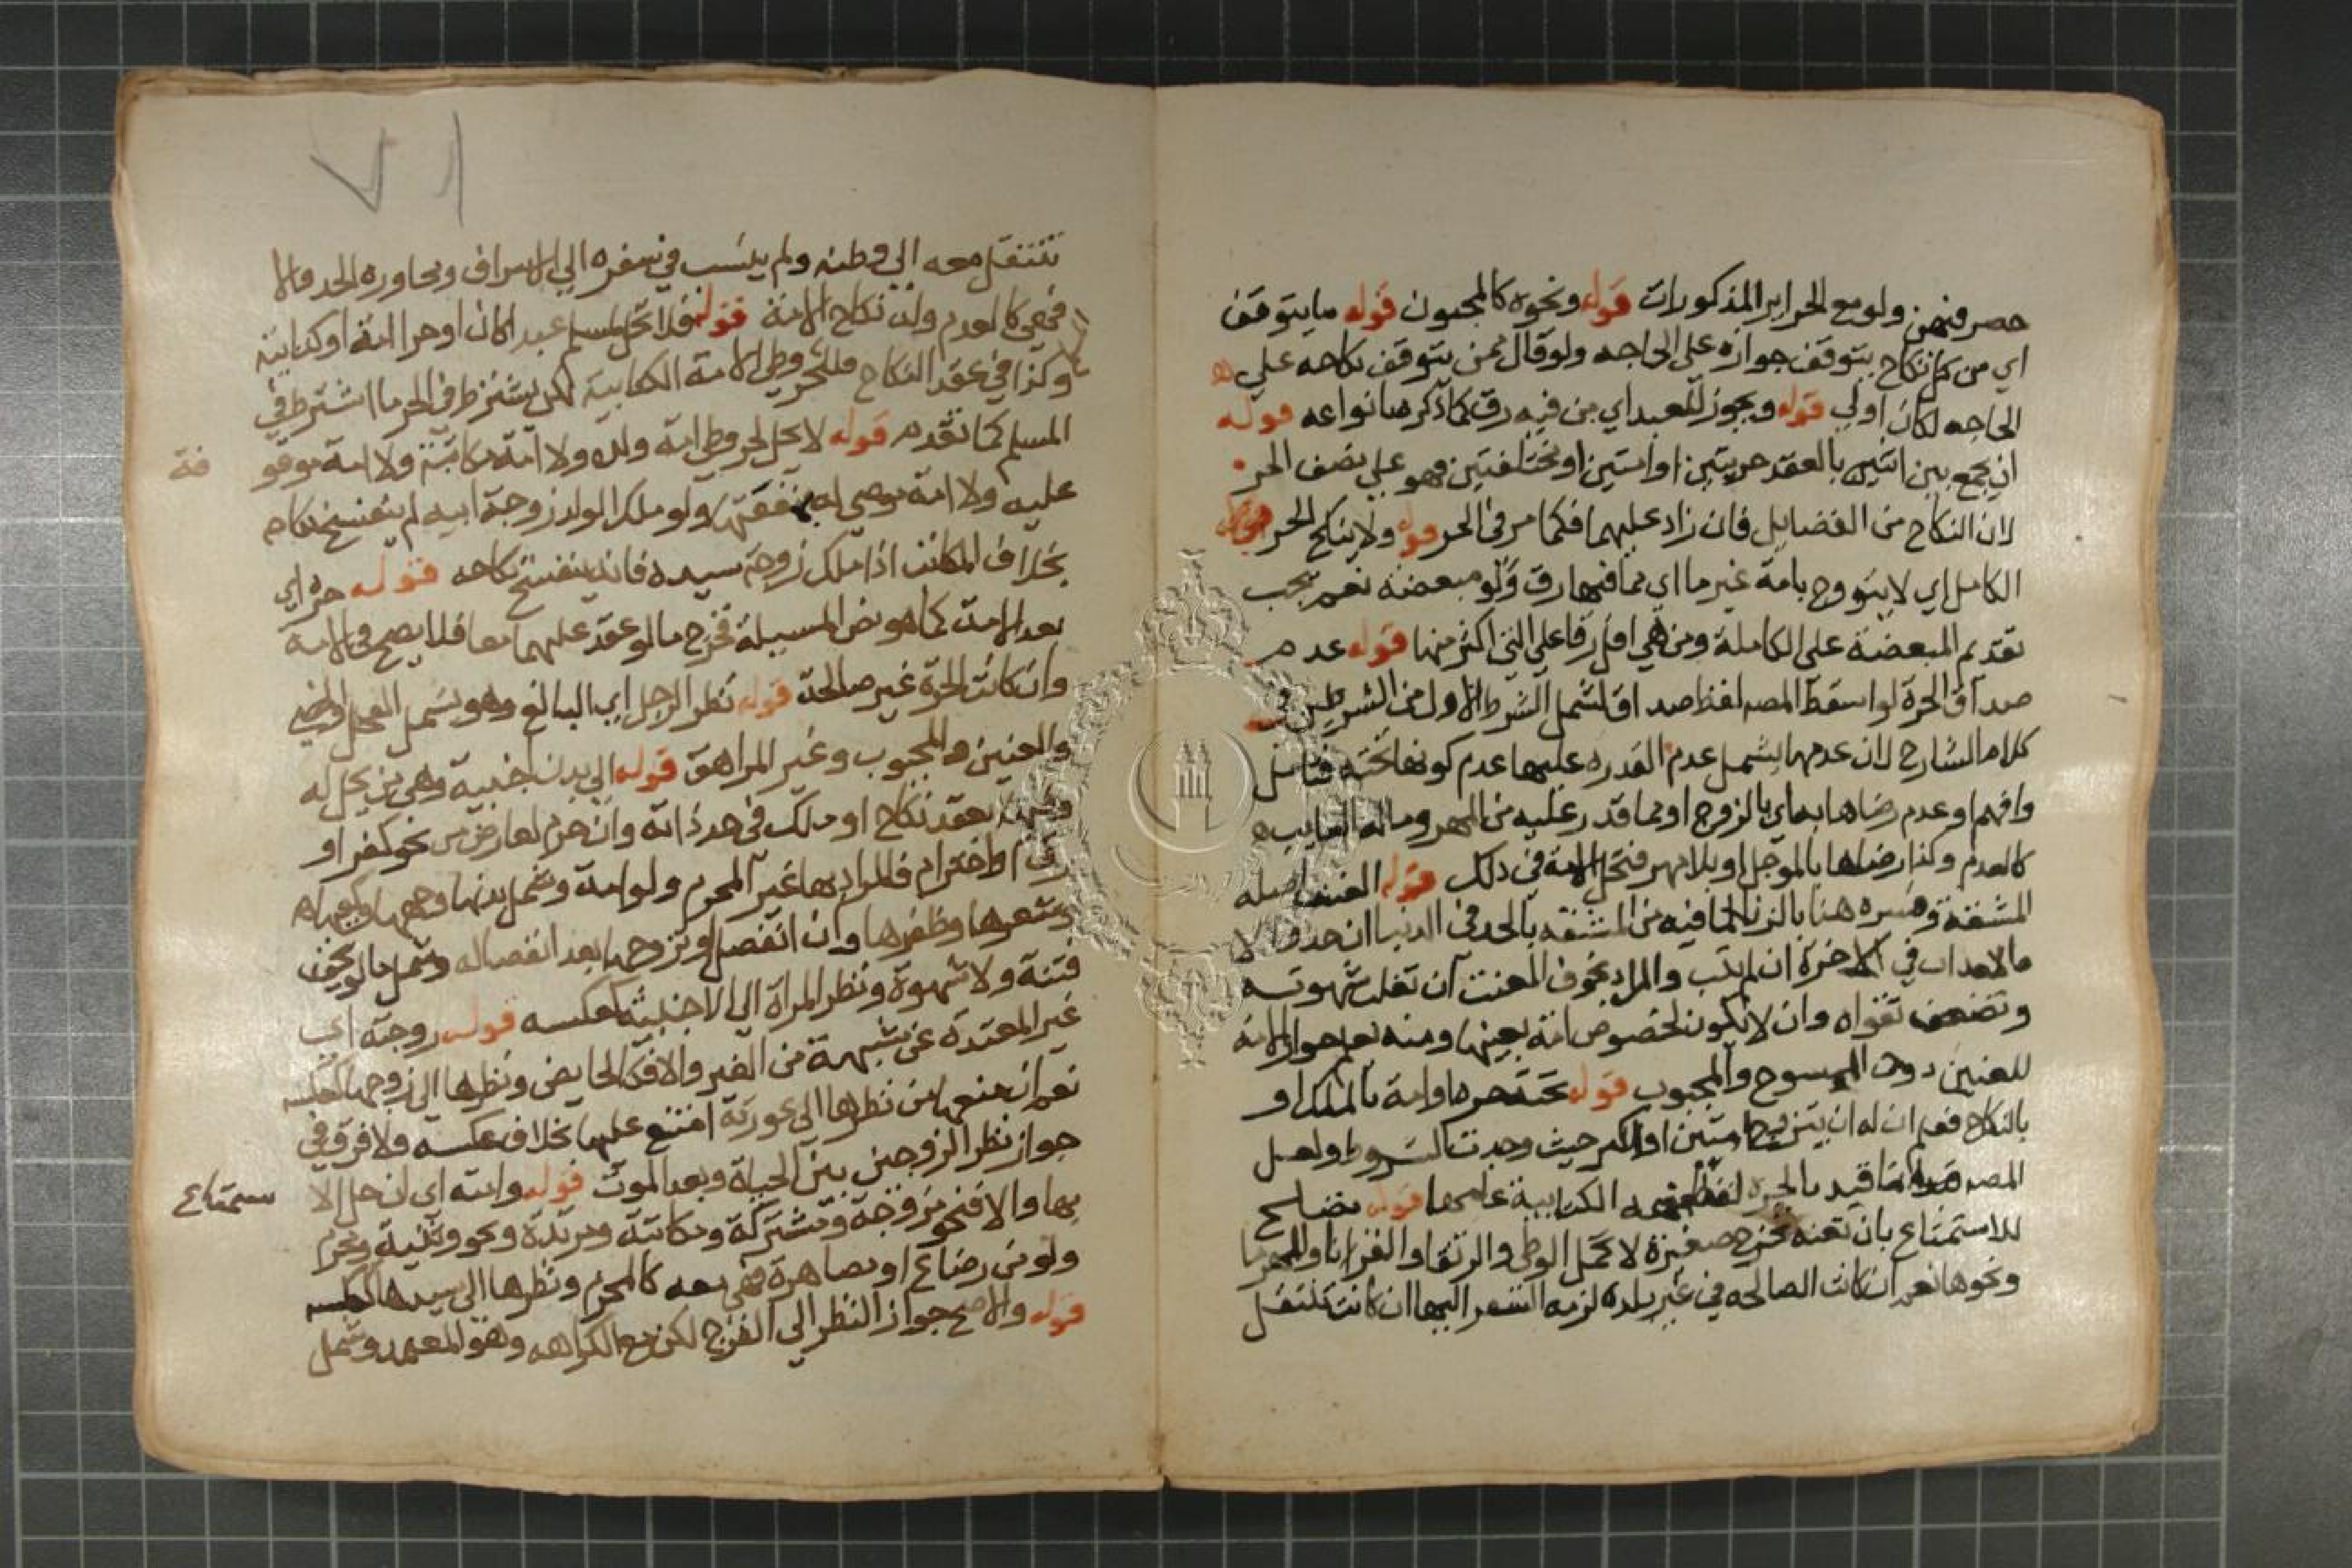 حصر فيهن ولو مع الحراير المذكورات قوله ونحوه كالمجنون قوله ما يتوقف
اي من كل نكاح يتوقف جوازه على الحاجه ولو قال ممن يتوقف نكاحه علي
الحاجه لكان اولي قوله ويجوز للعبد اي من فيه رق كما ذكر بانواعه قوله
ان يجمع بين اثنين بالعقد حريتين او امتين او مختلفتين فهو على نصف الحر
لان النكاح من الفضايل فان زاد عليهما فكما مر في الحر قوله ولا ينكح الحر
الكامل اي لا يتزوج بامة غير ما اي بما فيها رق ولو مبعضة نعم يجب
تقديم المبعضة على الكاملة ومن هي اقل رقا على التي اكثر منها قوله عدم
صداق الحرة لو اسقط المصه لفظ صداق لشمل الشرط الاول من الشرطين في
كلام الشارح لان عدمها يشمل عدم القدره عليها عدم كونها تحته فتامل
وافهم او عدم رضاها به اي بالزوج او بما قدر عليه من المهر وماله الغايب
كالعدم وكذا رضاها بالموجل او بلا مهر فتحل الامة في ذلك قوله العنت اصله
المشقة وفسره هنا بالزنا لما فيه من المشقه بالحد في الدنيا ان حد والا
فالعذاب في الاخرة ان لم يتب والمراد بخوف العنت ان تغلب شهوته
وتضعف تقواه وان لا يكون لخصوص امة بعينها ومنه يعلم جواز الامة
للعنين دون الممسوح والمجبوب قوله تحته حرها وامة بالملك او
بالنكاح فعلم ان له ان يتزوج امتين او اكثر حيث وجدت الشروط ولعل
المصه انما قيد بالحرة الكتابية عليها قوله تصلح
للاستمتاع بان تعفه فخرج صغيرة لا تحمل الوطي والرتقا والقرنا والهرما
ونحوها نعم ان كانت الصالحه في غير بلده لزمه السفر اليها ان كانت تنتقل
٧١
تنتقل معه الي وطنه ولم ينسب في سفره الي الاسراف ومجاوزه الحد والا
فهي كالعدم وله نكاح الامة قوله فلا تحل لمسلم عبدا كان او حرا امة او كتابية
وكذا في عقد النكاح فللحر وطي الامة الكتابية لكن يشترط في الحر ما اشترط في
المسلم كما تقدم قوله لا يحل لحر وطي امة ولده ولا امة مكاتبة ولا امة موقو
فة
عليه ولا امة موصي له بمنفعتها ولو ملك الولد زوجة ابيه لم ينفسخ نكاح
بخلاف المكاتب اذا ملك زوجة سيده فانه ينفسخ نكاحه قوله حرة اي
بعد الامة كما هو نص المسيلة فخرج ما لو عقد عليهما معا فلا يصح في الامة
وان كانت الحرة غير صالحة قوله نظر الرجل اي البالغ وهو يشمل الفحل والخصي
والعنين والمجبوب وغير المراهق قوله الي بدن اجنبية وهي من يحل له
بعقد نكاح او ملك في حد ذاته وان حرم لعارض من نحو كفر او
رق او احترام فالمراد بها غير المحرم ولو امة وشمل بدنها وجهها وكفيها
وشعرها وظفرها وان انفصل او تزوجها بعد انفصاله وشمل ما لو لم يخف
فتنة ولا شهوة ونظر المراة الى الاجنبي كعكسه قوله زوجته اي
غير المعتدة عن شبهة من الغير والا فكالحايض ونظرها الي زوجها كعكسه
نعم ان منعها من نظرها الى عورته امتنع عليها بخلاف عكسه ولا فرق في
جواز نظر الزوجين بين الحياة وبعد الموت قوله وامته اي ان حل الا
ستمتاع
بها والا فنحو مزوجة ومشتركة ومكاتبة ومرتدة ونحو وثنية ومحرم
ولو من رضاع او مصاهرة فهي معه كالمحرم ونظرها الى سيدها كعكسه
قوله والاصح جواز النظر الى الفرج لكن مع الكراهه وهو المعتمد وشمل